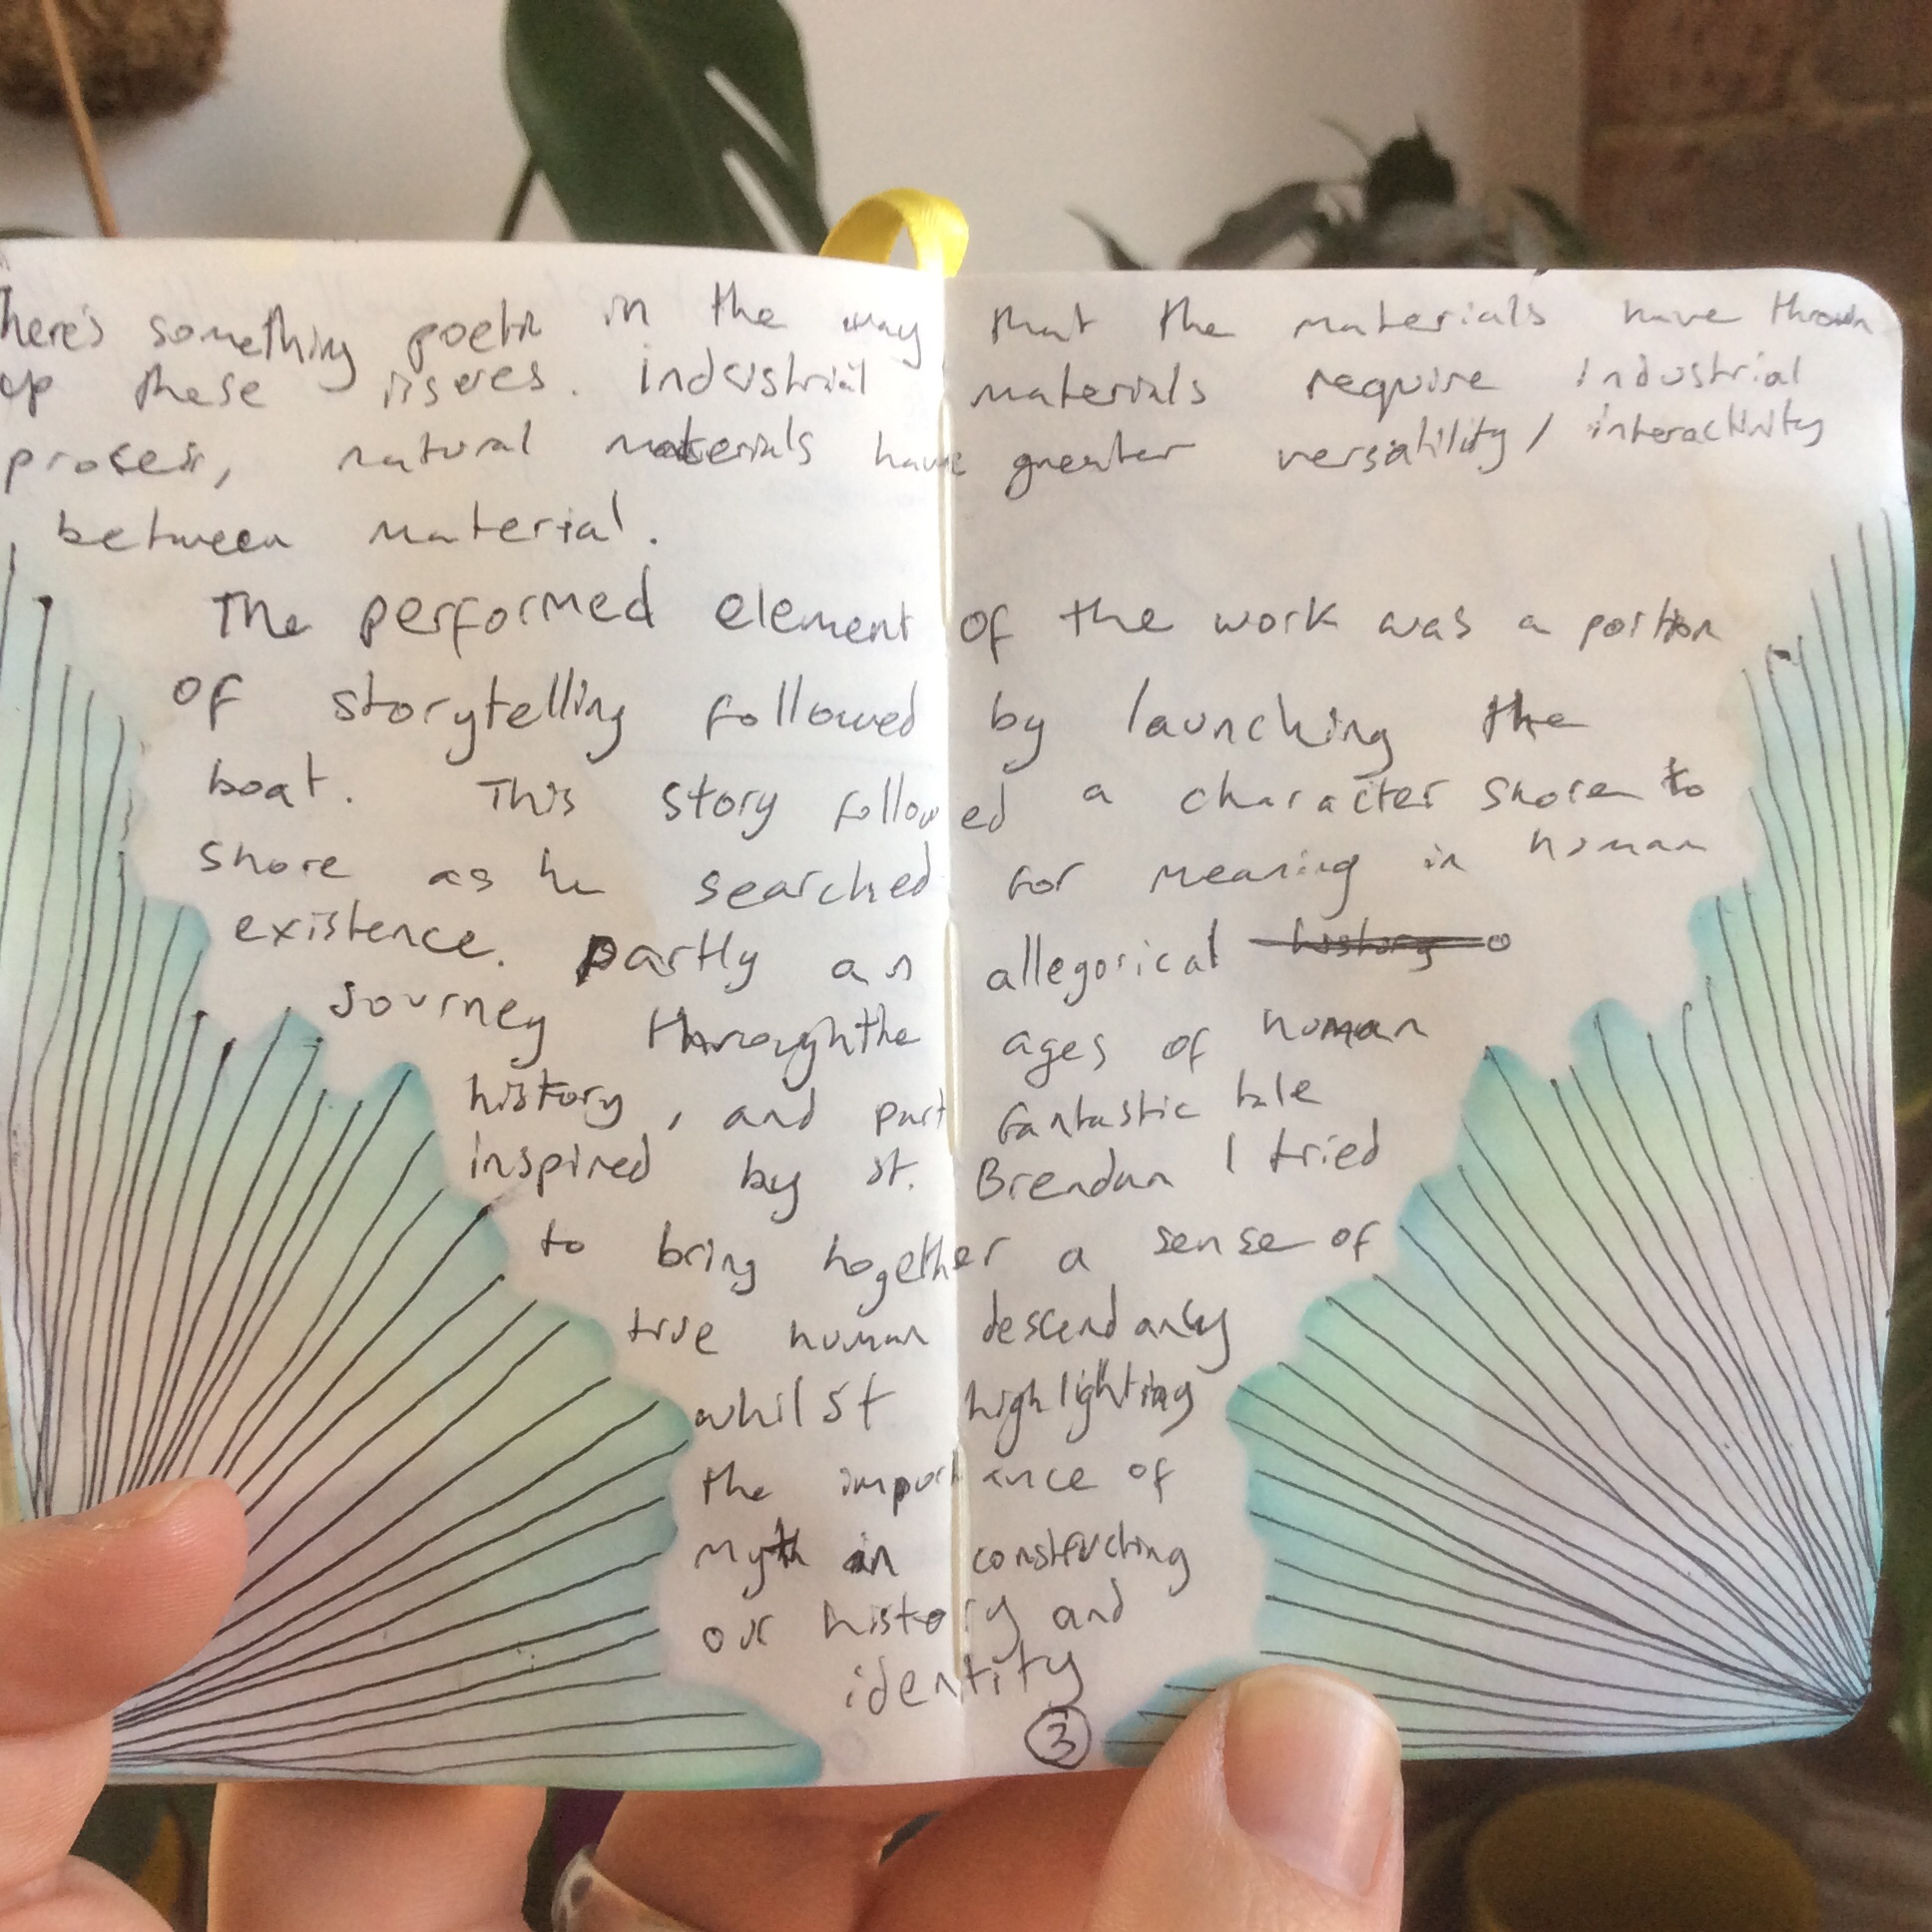 here's something poetic in the way that the materials have thrown
up these issues. Industrial materials require industrial
proces, natural materials have greater versatility / interactivity
between material.
The performed element of the work was a portion
of storytelling followed by launching the
boat. This story followed a character shore to
shore as he searched for meaning in human
existence. Partly an allegorical history
Journey through the ages of human
history, and part fantastic tale
inspired by St. Brendan I tried
to bring together a sense of
true human descendancy
whilst highlighting
the importance of
myth in constructing
our history and
identity
3